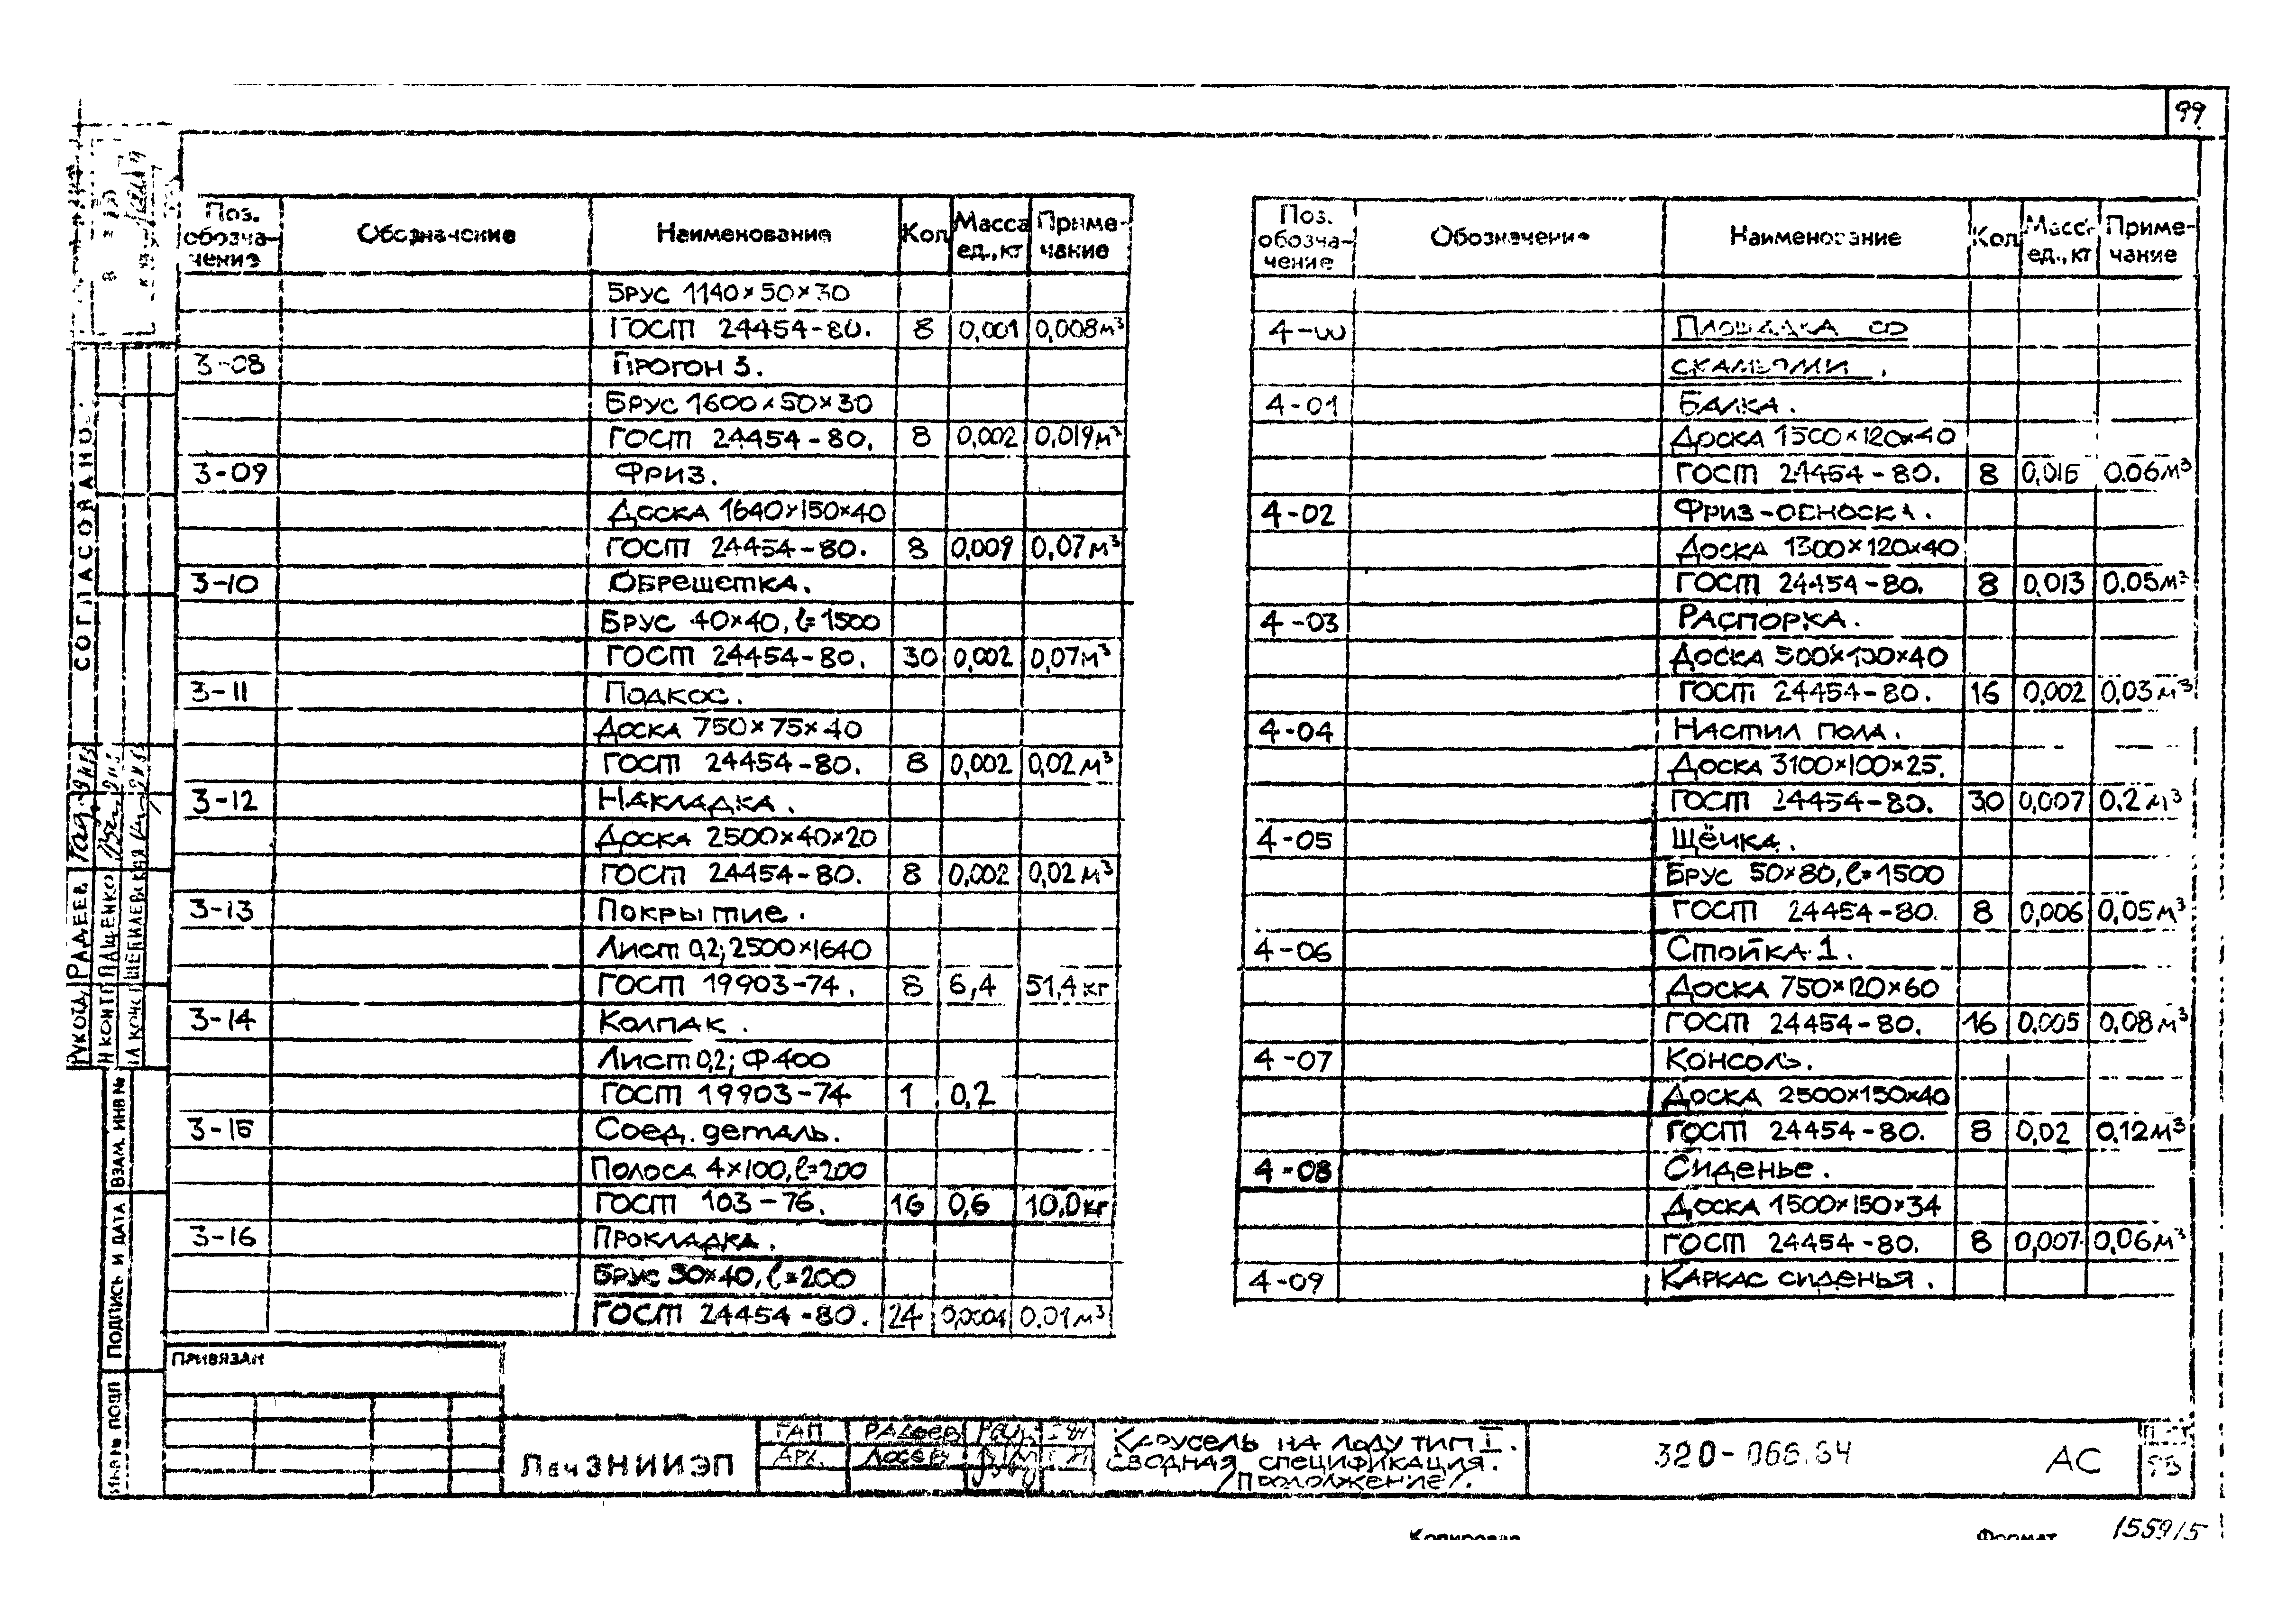 99
Поз. обозначение Обозначение Наименование Кол Масса ед., кг Примечание
Брус 1140×50×30
ГОСТ 24454-80. 8 0,001 0,008м³
3-08 Прогон 3.
Брус 1600×50×30
ГОСТ 24454-80. 8 0,002 0,019м³
3-09 Фриз.
Доска 1640×150×40
ГОСТ 24454-80. 8 0,009 0,07м³
3-10 Обрешетка.
Брус 40×40, ℓ=1500
ГОСТ 24454-80. 30 0,002 0,07м³
3-11 Подкос.
Доска 750×75×40
ГОСТ 24454-80. 8 0,002 0,02м³
3-12 Накладка.
Доска 2500×40×20
ГОСТ 24454-80. 8 0,002 0,02м³
3-13 Покрытие.
Лист 0,2; 2500×1640
ГОСТ 19903-74. 8 6,4 51,4кг
3-14 Колпак.
Лист 0,2; Ф400
ГОСТ 19903-74 1 0,2
3-15 Соед. деталь.
Полоса 4×100, ℓ=200
ГОСТ 103-76. 16 0,6 10,0кг
3-16 Прокладка.
Брус 50×40, ℓ=200
ГОСТ 24454-80. 24 0,0004 0.01м³
Поз. обозначение Обозначение Наименование Кол Масса ед., кг Примечание
4-00 Площадка со
скамьями.
4-01 Балка.
Доска 1500×120×40
ГОСТ 24454-80. 8 0,016 0.06м³
4-02 Фриз-обноска.
Доска 1300×120×40
ГОСТ 24454-80. 8 0,013 0.05м³
4-03 Распорка.
Доска 500×100×40
ГОСТ 24454-80. 16 0,002 0,03м³
4-04 Настил пола.
Доска 3100×100×25.
ГОСТ 24454-80. 30 0,007 0.2м³
4-05 Щёчка.
Брус 50×80, ℓ=1500
ГОСТ 24454-80. 8 0,006 0,05м³
4-06 Стойка 1.
Доска 750×120×60
ГОСТ 24454-80. 16 0.005 0,08м³
4-07 Консоль.
Доска 2500×150×40
ГОСТ 24454-80. 8 0,02 0.12м³
4-08 Сиденье.
Доска 1500×150×34
ГОСТ 24454-80. 8 0,007 0,06м³
4-09 Каркас сиденья.
СОГЛАСОВАНО
РУКОВОД РАДЕЕВ
Н КОНТР ПАЩЕНКО
ВЗАМ. ИНВ №
ПОДПИСЬ И ДАТА
ИНВ № ПОДЛ
Привязан
ЛенЗНИИЭП
ГАП Радеев
Арх. Лосев
Карусель на льду тип I.
Сводная спецификация.
/Продолжение/.
320-066.84
АС
Копировал
Формат
1559/5